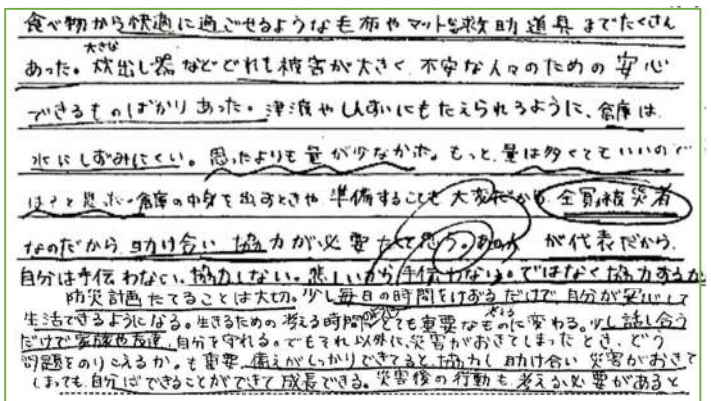 食べ物から快適に過ごせるような毛布やマット、救助道具までたくさん
大きな
あった。炊出し器などどれも被害が大きく不安な人々のための安心
できるものばかりあった。津波やしんすいにもたえられるように、倉庫は
水にしずみにくい。思ったよりも量が少なかった。もっと、量は多くてもいいので
は?と思った。倉庫の中身を出すときや準備することも大変だから、全員被災者
なのだから助け合い協力が必要だと思う。 が代表だから、
自分は手伝わない。協力しない。悲しいから手伝わない。ではなく協力するか
防災計画たてることは大切。少し毎日の時間をけずるだけで、自分が安心して
生活できるようになる。生きるための考える時間 とても重要なものに変わる。少し話し合う
だけで家族や友達、自分を守れる。でもそれ以外に、災害がおきてしまったとき、どう
問題をのりこえるか。も重要。備えがしっかりできてると、協力し助け合い災害がおきて
しまっても、自分にできることができて成長できる。災害後の行動も考える必要があると